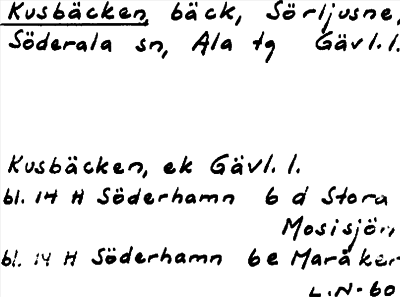 Kusbäcken, bäck, Sörljusne,
Söderala sn, Ala tg Gävl.l.
Kusbäcken, ek Gävl.l.
bl. 14 H Söderhamn 6 d Stora
Mosisjön
bl. 14 H Söderhamn 6e Maråker
L.N-60